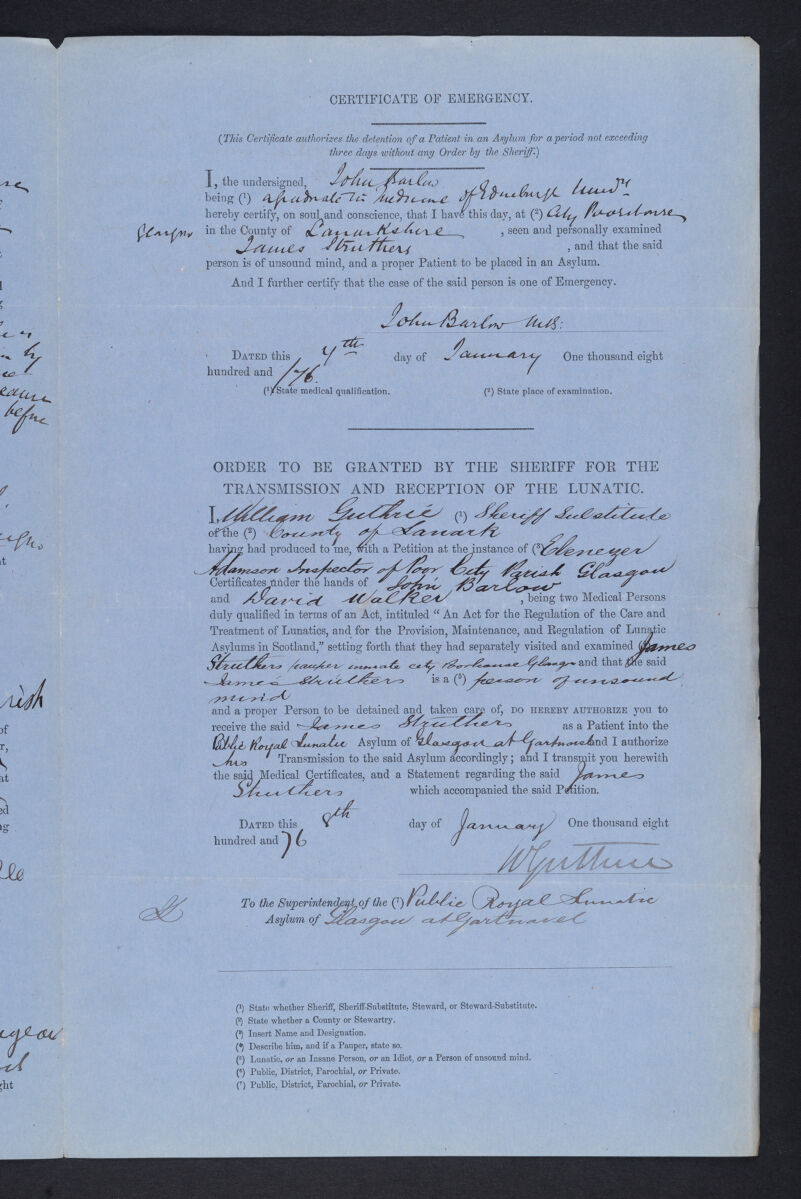 CERTIFICATE OF EMERGENCY.
(This Certificate authorizes the detention of a Patient in an Asylum for a period not exceeding
three days without any Order by the Sheriff.)
I, the undersigned, John Barlow
being (¹) a graduate in medicine of Edinburgh Univy
hereby certify, on soul and conscience, that I have this day, at (²) City Poorhouse
Glasgow in the County of Lanarkshire , seen and personally examined
James Struthers , and that the said
person is of unsound mind, and a proper Patient to be placed in an Asylum.
And I further certify that the case of the said person is one of Emergency.
John Barlow M.B:
DATED this 7th day of January One thousand eight
hundred and /76.
(¹) State medical qualification. (²) State place of examination.
ORDER TO BE GRANTED BY THE SHERIFF FOR THE
TRANSMISSION AND RECEPTION OF THE LUNATIC.
I, William Guthrie (¹) Sheriff Substitute
of the (²) County of Lanark
having had produced to me, with a Petition at the instance of (³) Ebenezer
Adamson Inspector of Poor City Parish Glasgow
Certificates under the hands of John Barlow
and David Walker , being two Medical Persons
duly qualified in terms of an Act, intituled “ An Act for the Regulation of the Care and
Treatment of Lunatics, and for the Provision, Maintenance, and Regulation of Lunatic
Asylums in Scotland,” setting forth that they had separately visited and examined (⁴) James
Struthers pauper inmate city Poorhouse Glasgow and that the said
James Struthers is a (⁵) person of unsound
mind
and a proper Person to be detained and taken care of, DO HEREBY AUTHORIZE you to
receive the said James Struthers as a Patient into the
Public Royal Lunatic Asylum of Glasgow at Gartnavel and I authorize
his Transmission to the said Asylum accordingly; and I transmit you herewith
the said Medical Certificates, and a Statement regarding the said James
Struthers which accompanied the said Petition.
DATED this 8th day of January One thousand eight
hundred and 76
W Guthrie
To the Superintendent of the (⁷) Public Royal Lunatic
Asylum of Glasgow at Gartnavel
(¹) State whether Sheriff, Sheriff-Substitute, Steward, or Steward-Substitute.
(²) State whether a County or Stewartry.
(³) Insert Name and Designation.
(⁴) Describe him, and if a Pauper, state so.
(⁵) Lunatic, or an Insane Person, or an Idiot, or a Person of unsound mind.
(⁶) Public, District, Parochial, or Private.
(⁷) Public, District, Parochial, or Private.